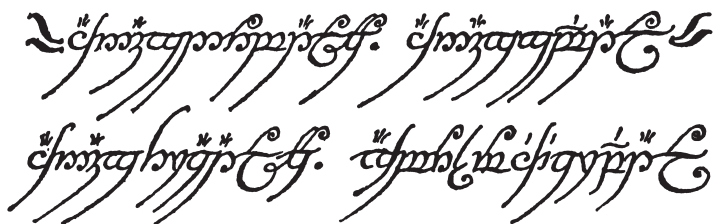 ash nazg durbatulûk ash nazg gimbatul
ash nazg thrakatulûk agh burzum-ishi krimpatul